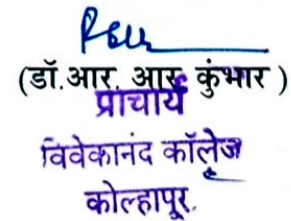 (डॉ.आर. आर. कुंभार )
प्राचार्य
विवेकानंद कॉलेज
कोल्हापूर.